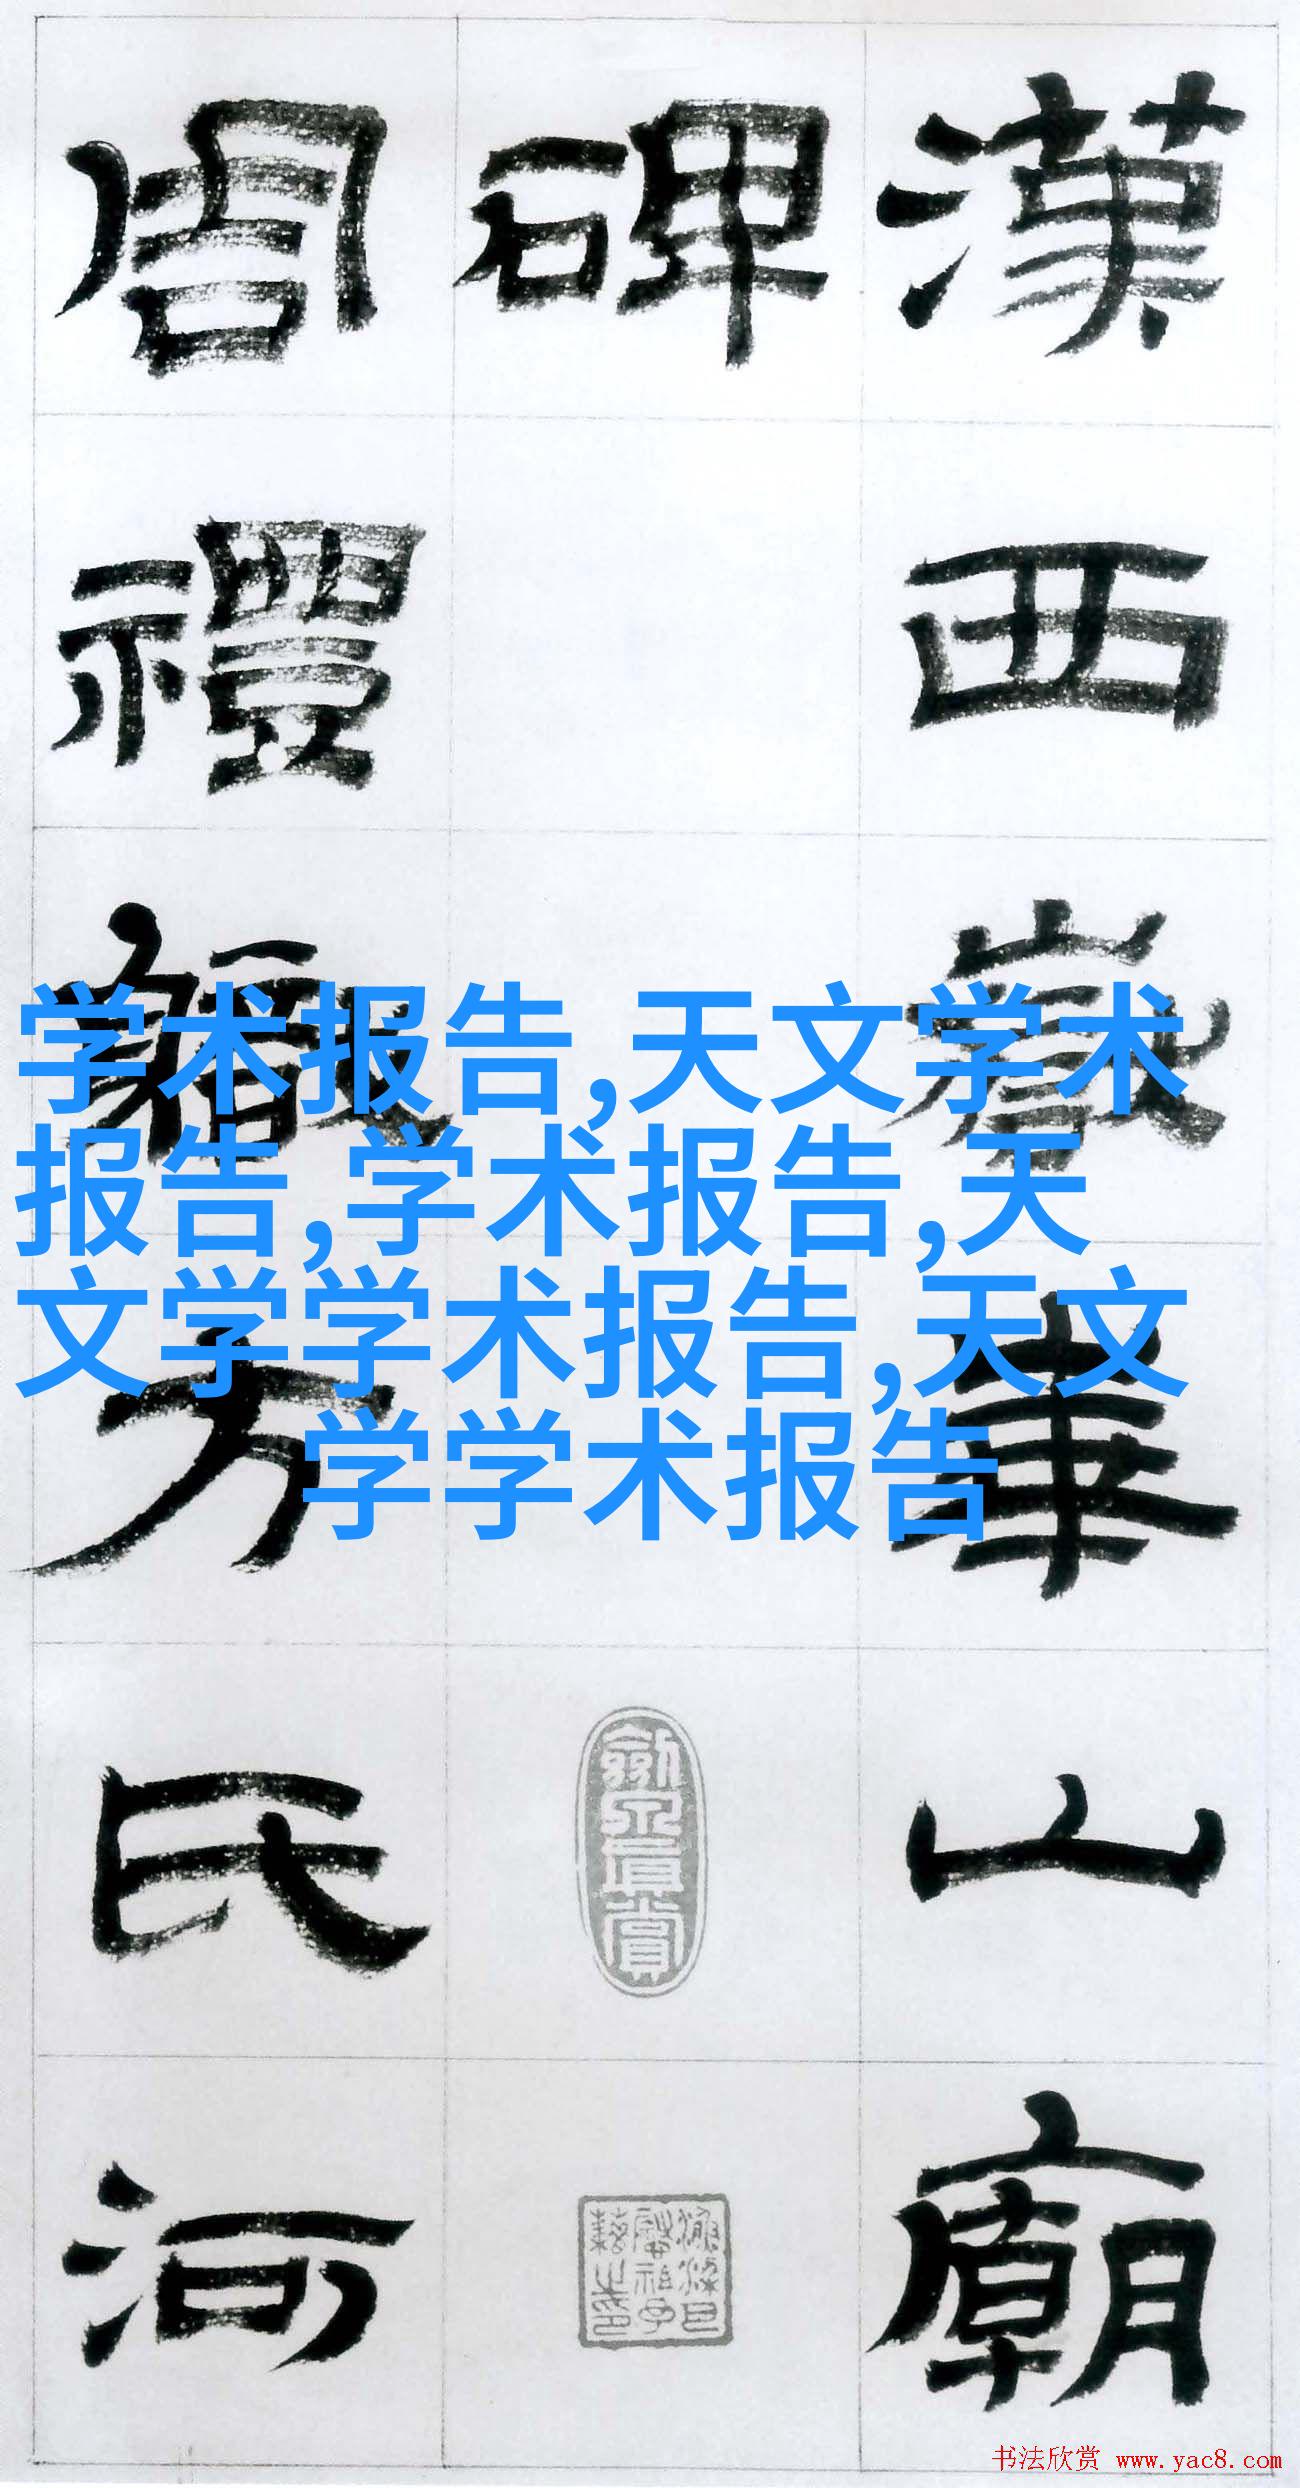 漢西嶽華山廟
碑
周禮職方氏河
学术报告,天文学术
报告,学术报告,天
文学学术报告,天文
学学术报告
书法欣赏 www.yac8.com